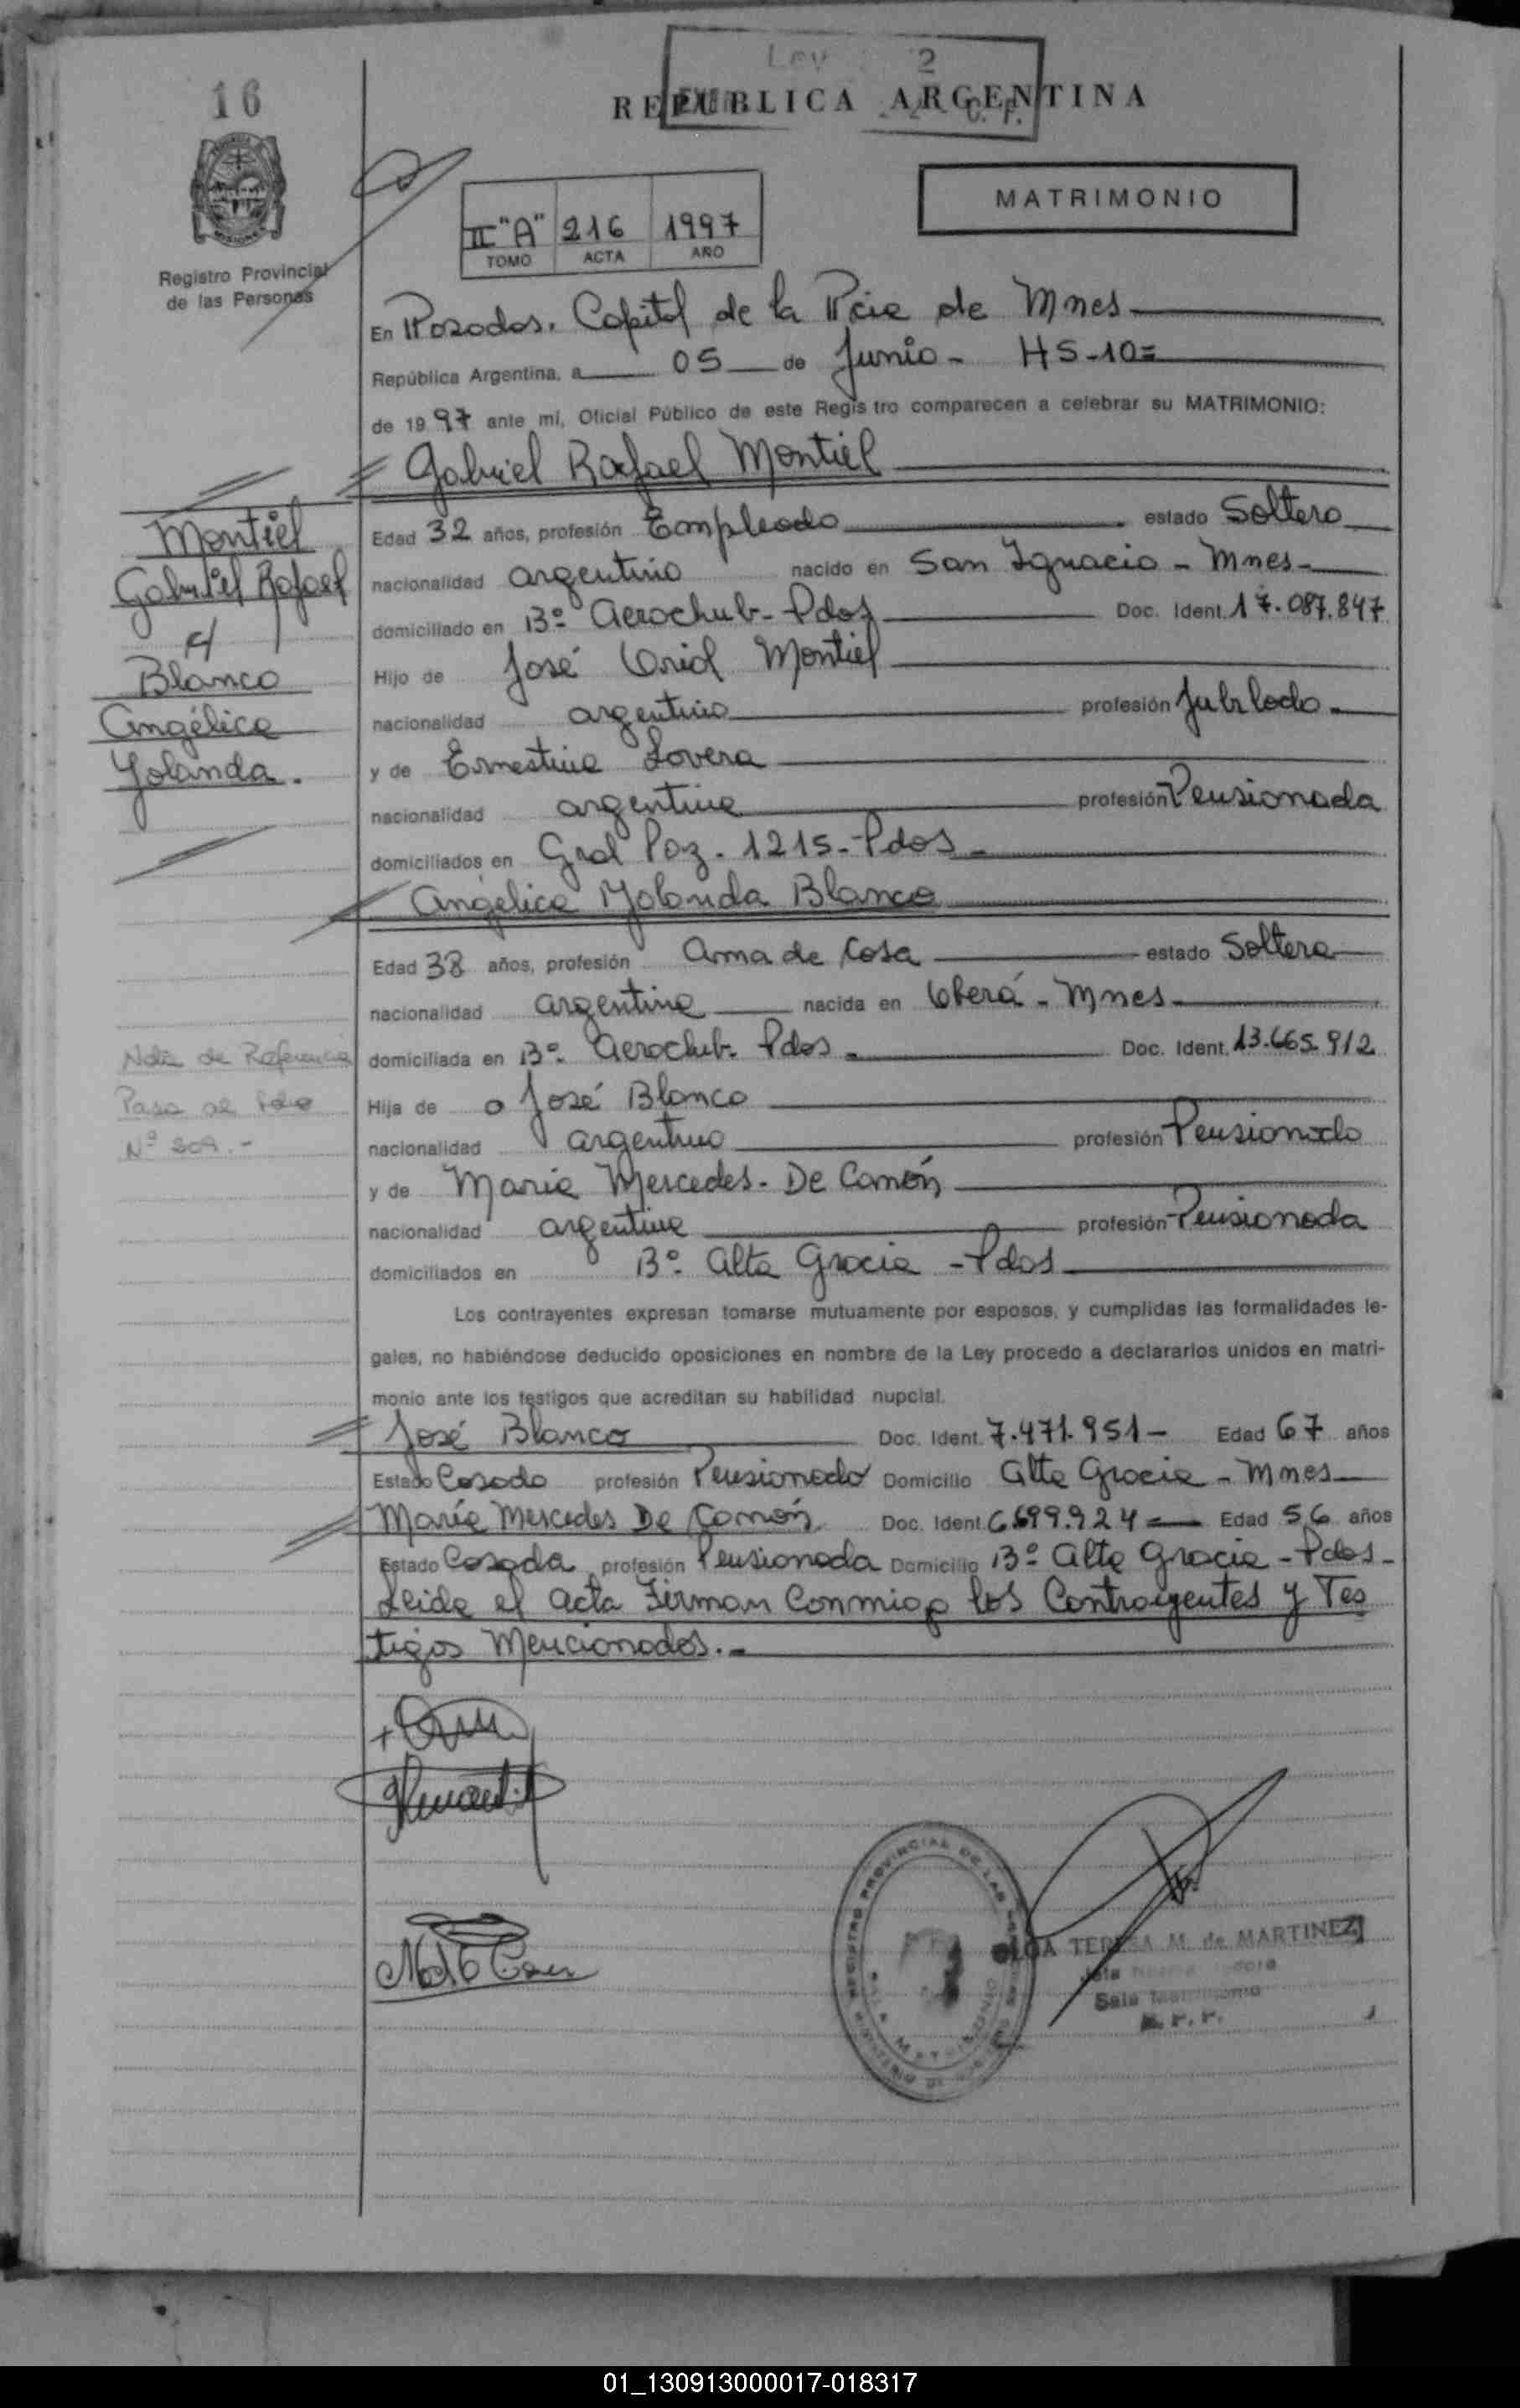 16
Ley 2
REPUBLICA ARGENTINA
C. F.
MATRIMONIO
II "A" 216 1997
TOMO ACTA AÑO
Registro Provincial
de las Personas
En Posadas, Capital de la Pcia de Mnes
República Argentina, a 05 de Junio - HS-10=
de 1997 ante mí, Oficial Público de este Registro comparecen a celebrar su MATRIMONIO:
Gabriel Rafael Montiel
Edad 32 años, profesión Empleado estado Soltero
nacionalidad argentino nacido en San Ignacio - Mnes-
domiciliado en Bº Aeroclub- Pdas Doc. Ident. 17.087.847
Hijo de José Oriol Montiel
nacionalidad argentino profesión Jubilado
y de Ernestina Lovera
nacionalidad argentina profesión Pensionada
domiciliados en Gral Paz. 1215- Pdas
Angélica Yolanda Blanco
Edad 38 años, profesión Ama de Casa estado Soltera
nacionalidad argentina nacida en Oberá - Mnes
domiciliada en Bº Aeroclub- Pdas Doc. Ident. 13.665.912
Hija de José Blanco
nacionalidad argentino profesión Pensionado
y de María Mercedes De Camón
nacionalidad argentina profesión Pensionada
domiciliados en Bº Alta Gracia - Pdas
Los contrayentes expresan tomarse mutuamente por esposos, y cumplidas las formalidades le-
gales, no habiéndose deducido oposiciones en nombre de la Ley procedo a declararlos unidos en matri-
monio ante los testigos que acreditan su habilidad nupcial.
José Blanco Doc. Ident. 7.471.951- Edad 67 años
Estado Casado profesión Pensionado Domicilio Alta Gracia - Mnes
María Mercedes De Camón Doc. Ident. 6.699.924 Edad 56 años
Estado Casada profesión Pensionada Domicilio Bº Alta Gracia - Pdas-
Leída el acta Firman Conmigo los Contrayentes y Tes
tigos Mencionados.-
Montiel
Gabriel Rafael
c/
Blanco
Angélica
Yolanda.
Nota de Referencia
Pasa al folio
Nº 209.-
REGISTRO PROVINCIAL DE LAS
SALA MATRIMONIO
OLGA TERESA M. de MARTINEZ
Sala Matrimonio
R. P. P.
01_130913000017-018317